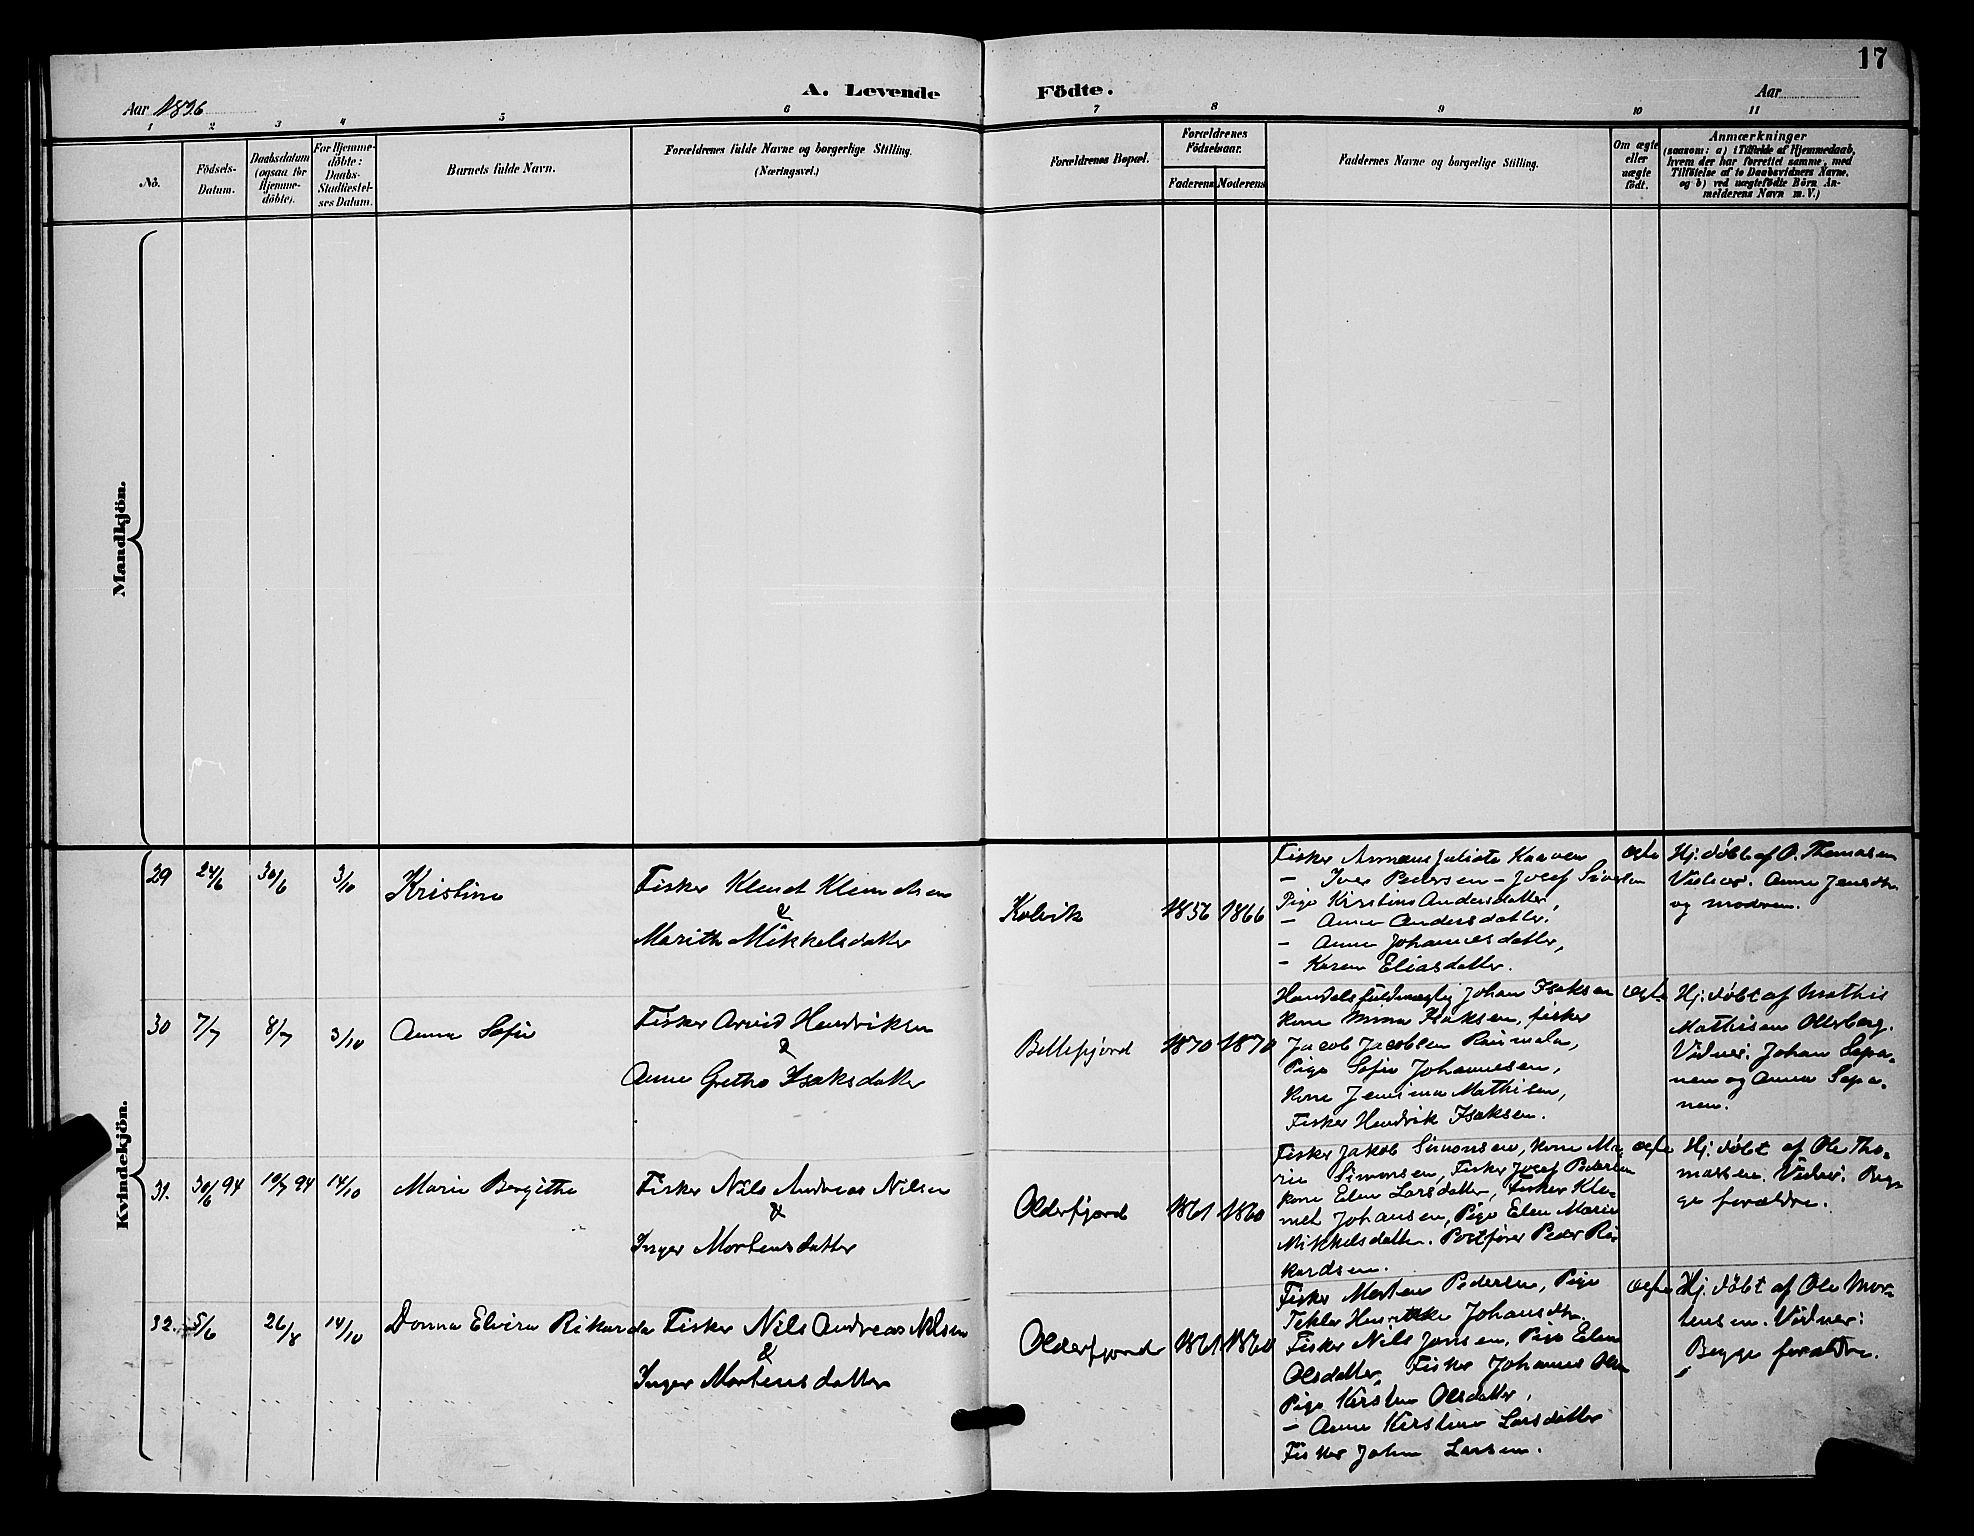 17
A. Levende Födte.
Aar 1896
Aar
1 2 3 4 5 6 7 8 9 10 11
No.
Födsels-Datum.
Daabsdatum (ogsaa for Hjemme-döbte).
For Hjemme-döbte: Daabs-Stadfæstel-ses Datum.
Barnets fulde Navn.
Forældrenes fulde Navne og borgerlige Stilling.
(Næringsvei.)
Forældrenes Bopæl.
Forældrenes Födselsaar.
Faderens Moderens
Faddernes Navne og borgerlige Stilling.
Om ægte eller uægte födt.
Anmærkninger
(saasom: a) i Tilfælde af Hjemmedaab,
hvem der har forrettet samme, med
Tilföielse af to Daabsvidners Navne,
og b) ved uægtefödte Börn An-
melderens Navn m. V.)
Mandkjön.
Kvindekjön.
29 24/6 30/6 3/10 Kristine
Fisker Klemet Klemetsen
&
Marith Mikkelsdatter
Kolvik 1856 1866
Fisker
– Iver Pedersen – Josef Siversen
Pige Kirstine Andersdatter,
– Anne Andersdatter.
– Anne Johannesdatter,
– Karen Eliasdatter.
ægte
Hj. döbt af O. Thomasen
Vidner: Anne Jensdtr.
og moderen.
30 7/7 8/7 3/10 Anna Sofie
Fisker Arvid Hendriksen
&
Anne Grethe Isaksdatter
Billefjord 1870 1870
Handelsfuldmægtig Johan Isaksen
Kone Mina Isaksen, fisker
Jacob Jacobsen
Pige Sofie Johannesen,
Kone Jemima Mathisen,
Fisker Hendrik Isaksen.
ægte
Hj. döbt af Mathis
Mathisen
Vidner: Johan Sepa-
nen og Anna Sepa-
nen.
31. 30/6 94 10/7 94 14/10 Marie Bergithe
Fisker Nils Andreas Nilsen
&
Inger Mortensdatter
Olderfjord 1861 1860
Fisker Jakob Simonsen, Kone Ma-
rie Simonsen, Fisker Josef Pedersen
Kone Elen Larsdatter, Fisker Kle-
met Johansen, Pige Elen Marie
Mikkelsdatter. Postförer Peder Ri-
kardsen.
ægte
Hj. döbt af Ole Tho-
massen. Vidner: Beg-
ge forældre.
32. 5/6 26/8 14/10 Donna Elvira Rikarda
Fisker Nils Andreas Nilsen
&
Inger Mortensdatter
Olderfjord 1861 1860
Fisker Morten Pedersen, Pige
Tekla Henrikke Johansdtr.
Fisker Nils Jansen, Pige Elen
Olsdatter, Fisker Johannes Olsen
Pige Kirsten Olsdatter,
– Anne Kirstine Larsdatter
Fisker John Larsen.
ægte
Hj. döbt af Ole Mor-
tensen. Vidner:
Begge forældre.